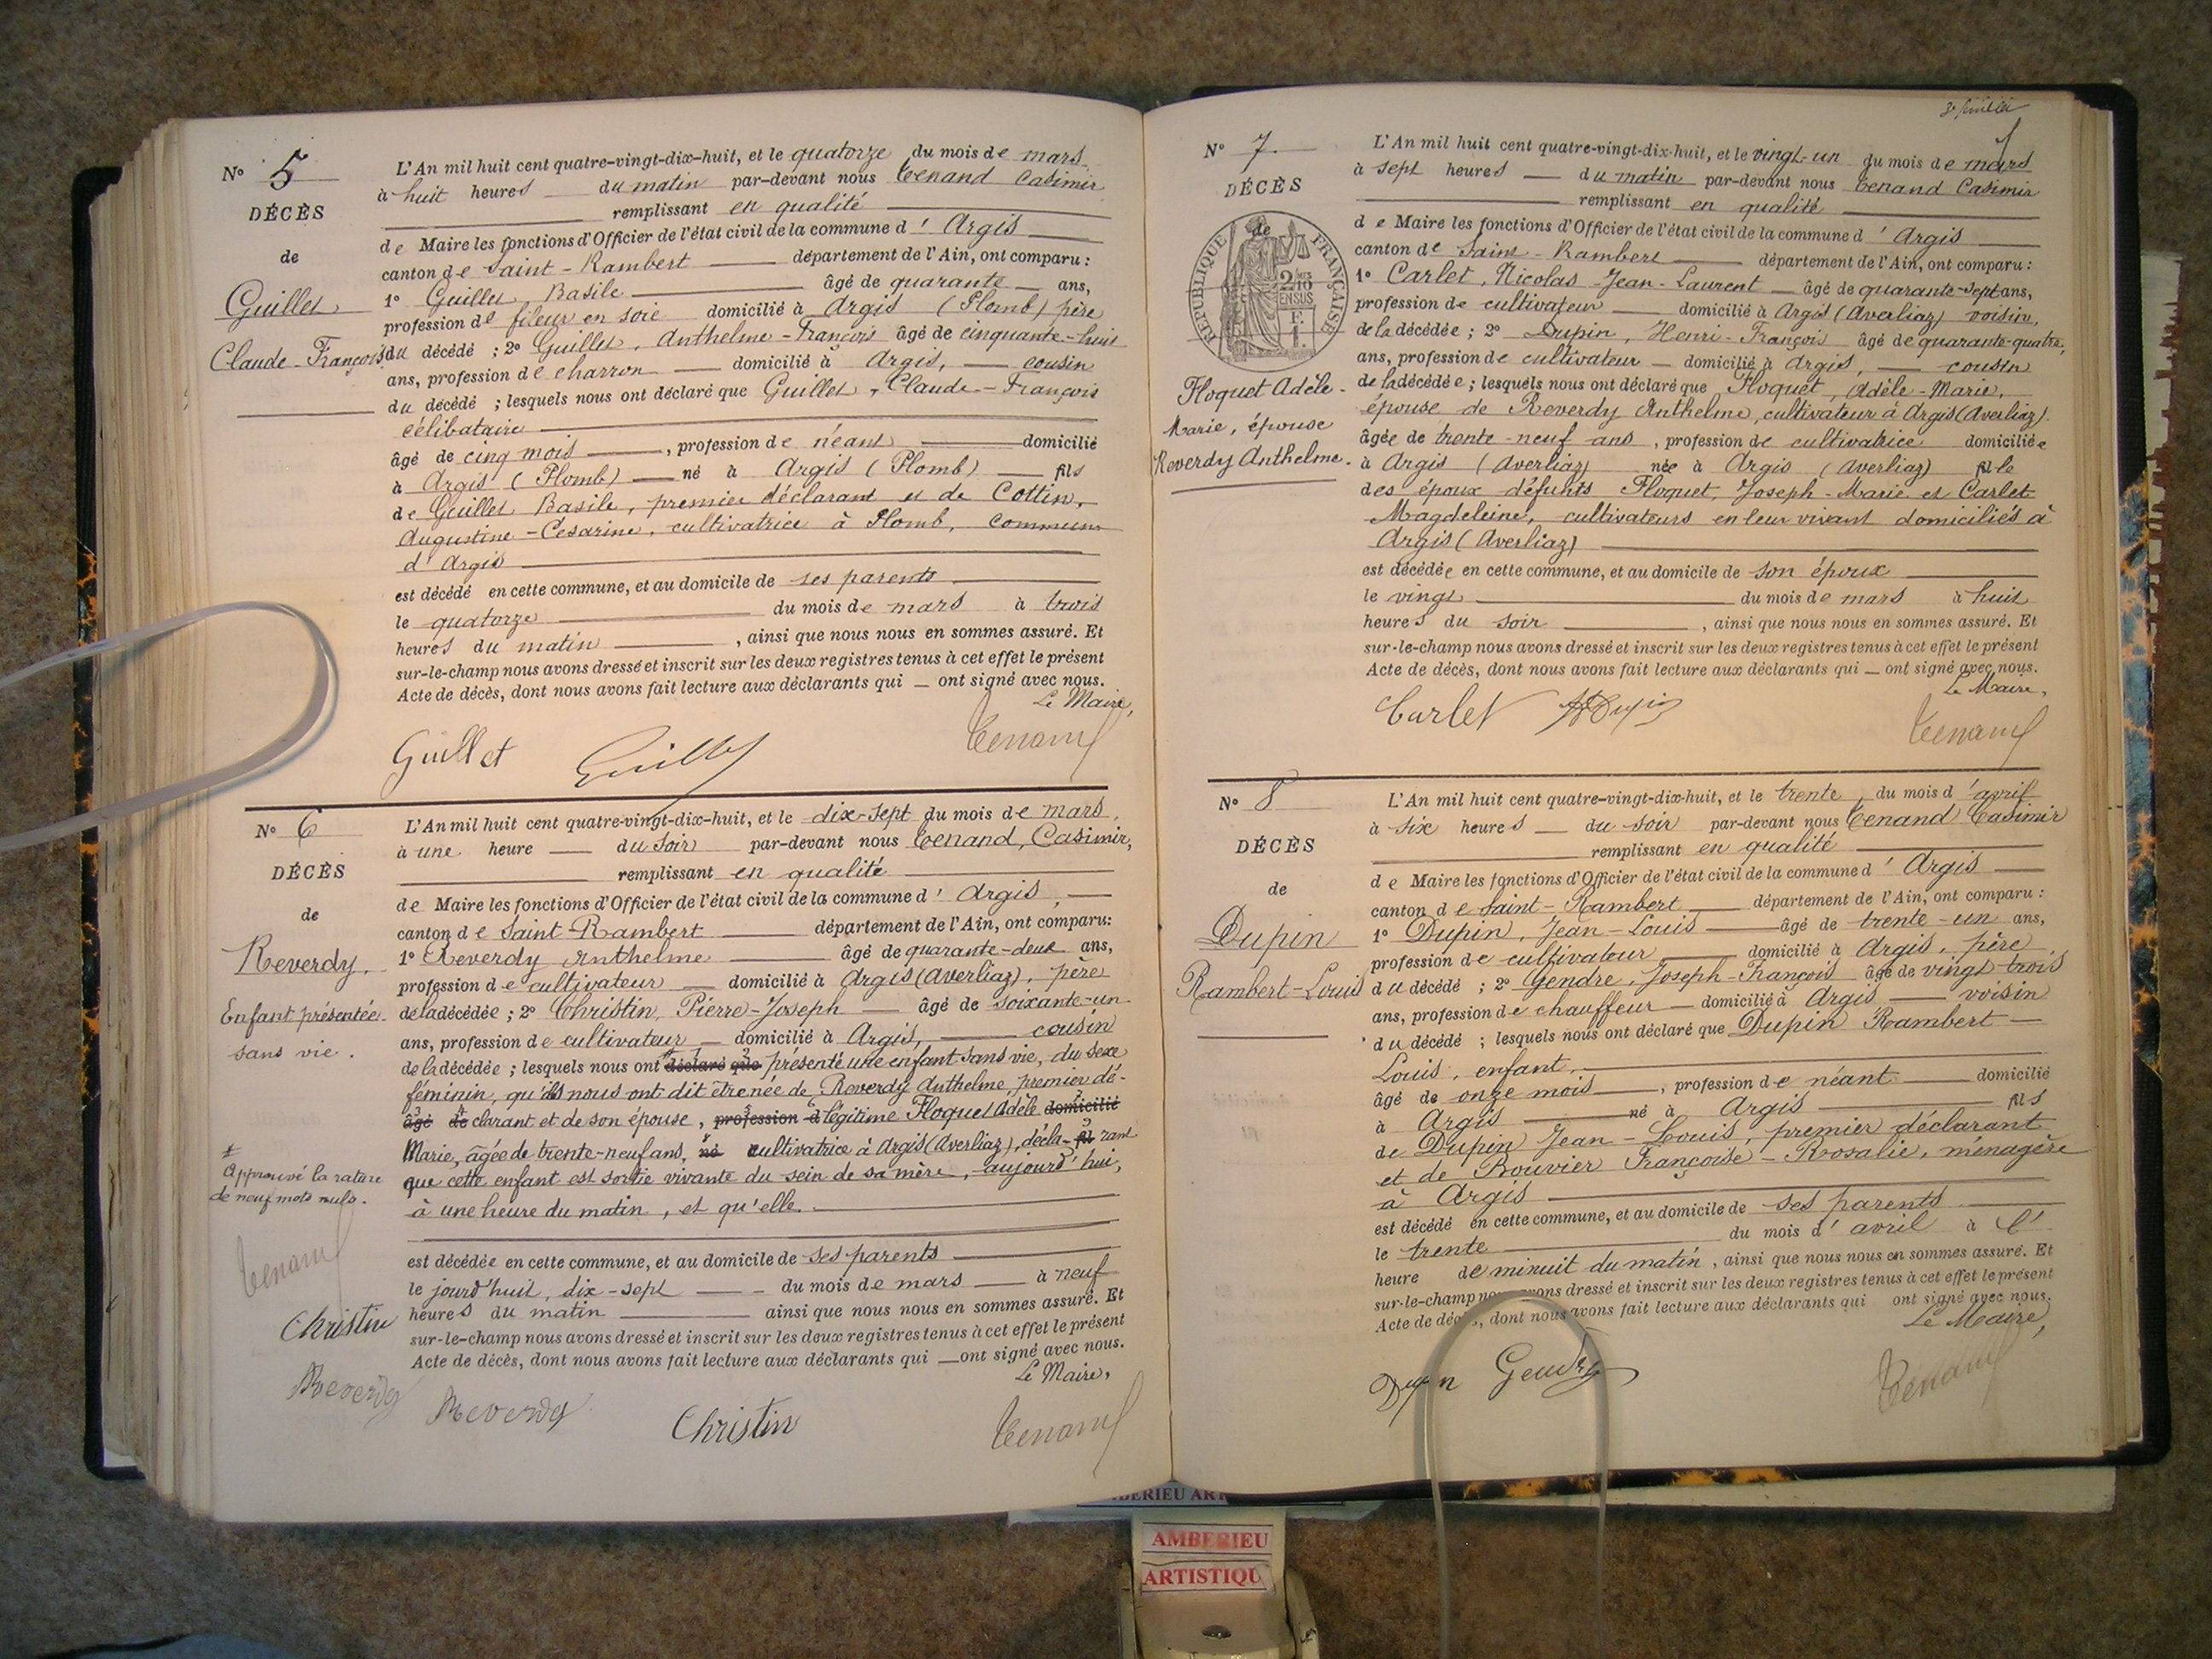 N° 5
DÉCÈS
de
Guillet
Claude-François
L'An mil huit cent quatre-vingt-dix-huit, et le quatorze du mois de mars
à huit heures du matin par-devant nous Tenand Casimir
remplissant en qualité
de Maire les fonctions d'Officier de l'état civil de la commune d'Argis
canton de Saint-Rambert département de l'Ain, ont comparu :
1° Guillet Basile âgé de quarante ans,
profession de fileur en soie domicilié à Argis (Plomb) père
du décédé ; 2° Guillet, Anthelme-François âgé de cinquante-huit
ans, profession de charron domicilié à Argis, cousin
du décédé ; lesquels nous ont déclaré que Guillet, Claude-François
célibataire
âgé de cinq mois, profession de néant domicilié
à Argis (Plomb) né à Argis (Plomb) fils
de Guillet Basile, premier déclarant et de Cottin,
Augustine-Césarine, cultivatrice à Plomb, commune
d'Argis
est décédé en cette commune, et au domicile de ses parents
le quatorze du mois de mars à trois
heures du matin, ainsi que nous nous en sommes assuré. Et
sur-le-champ nous avons dressé et inscrit sur les deux registres tenus à cet effet le présent
Acte de décès, dont nous avons fait lecture aux déclarants qui ont signé avec nous.
Le Maire,
Guillet Guillet Tenand
N° 6
DÉCÈS
de
Reverdy.
Enfant présentée
sans vie.
L'An mil huit cent quatre-vingt-dix-huit, et le dix-sept du mois de mars,
à une heure du soir par-devant nous Tenand, Casimir,
remplissant en qualité
de Maire les fonctions d'Officier de l'état civil de la commune d'Argis,
canton de Saint-Rambert département de l'Ain, ont comparu :
1° Reverdy Anthelme âgé de quarante-deux ans,
profession de cultivateur domicilié à Argis (Averliaz), père
de la décédée ; 2° Christin, Pierre-Joseph âgé de soixante-un
ans, profession de cultivateur domicilié à Argis, cousin
de la décédée ; lesquels nous ont déclaré que présenté une enfant sans vie, du sexe
féminin, qu'ils nous ont dit être née de Reverdy Anthelme, premier dé-
âgé de clarant et de son épouse, profession d légitime Floquet Adèle domicilié
Marie, âgée de trente-neuf ans, né cultivatrice à Argis (Averliaz), décla- fil rant
que cette enfant est sortie vivante du sein de sa mère, aujourd'hui,
à une heure du matin, et qu'elle
est décédée en cette commune, et au domicile de ses parents
le jourd'huit, dix-sept du mois de mars à neuf
heures du matin ainsi que nous nous en sommes assuré. Et
sur-le-champ nous avons dressé et inscrit sur les deux registres tenus à cet effet le présent
Acte de décès, dont nous avons fait lecture aux déclarants qui ont signé avec nous.
Le Maire,
Approuvé la rature
de neuf mots nuls.
Tenand
Christin
Reverdy
Reverdy Christin Tenand
3e feuillet
N° 7
DÉCÈS
de
RÉPUBLIQUE FRANÇAISE
Floquet Adèle-
Marie, épouse
Reverdy Anthelme.
L'An mil huit cent quatre-vingt-dix-huit, et le vingt-un du mois de mars
à sept heures du matin par-devant nous Tenand Casimir
remplissant en qualité
de Maire les fonctions d'Officier de l'état civil de la commune d'Argis
canton de Saint-Rambert département de l'Ain, ont comparu :
1° Carlet, Nicolas-Jean-Laurent âgé de quarante-sept ans,
profession de cultivateur domicilié à Argis (Averliaz) voisin,
de la décédée ; 2° Dupin, Henri-François âgé de quarante-quatre,
ans, profession de cultivateur domicilié à Argis, cousin
de la décédée ; lesquels nous ont déclaré que Floquet, Adèle-Marie,
épouse de Reverdy Anthelme, cultivateur à Argis (Averliaz).
âgée de trente-neuf ans, profession de cultivatrice domiciliée
à Argis (Averliaz) née à Argis (Averliaz) fille
des époux défunts Floquet, Joseph-Marie et Carlet
Magdeleine, cultivateurs en leur vivant domiciliés à
Argis (Averliaz)
est décédée en cette commune, et au domicile de son époux
le vingt du mois de mars à huit
heures du soir, ainsi que nous nous en sommes assuré. Et
sur-le-champ nous avons dressé et inscrit sur les deux registres tenus à cet effet le présent
Acte de décès, dont nous avons fait lecture aux déclarants qui ont signé avec nous.
Le Maire,
Carlet HDupin Tenand
N° 8
DÉCÈS
de
Dupin
Rambert-Louis
L'An mil huit cent quatre-vingt-dix-huit, et le trente du mois d'avril
à six heures du soir par-devant nous Tenand Casimir
remplissant en qualité
de Maire les fonctions d'Officier de l'état civil de la commune d'Argis
canton de Saint-Rambert département de l'Ain, ont comparu :
1° Dupin, Jean-Louis âgé de trente-un ans,
profession de cultivateur domicilié à Argis, père
du décédé ; 2° Gendre, Joseph-François âgé de vingt-trois
ans, profession de chauffeur domicilié à Argis voisin
du décédé ; lesquels nous ont déclaré que Dupin Rambert-
Louis, enfant,
âgé de onze mois, profession de néant domicilié
à Argis né à Argis fils
de Dupin Jean-Louis, premier déclarant
et de Bouvier Françoise-Rosalie, ménagère
à Argis
est décédé en cette commune, et au domicile de ses parents
le trente du mois d'avril à l'
heure de minuit du matin, ainsi que nous nous en sommes assuré. Et
sur-le-champ nous avons dressé et inscrit sur les deux registres tenus à cet effet le présent
Acte de décès, dont nous avons fait lecture aux déclarants qui ont signé avec nous.
Le Maire,
Dupin Gendre Tenand
AMBERIEU
ARTISTIQU